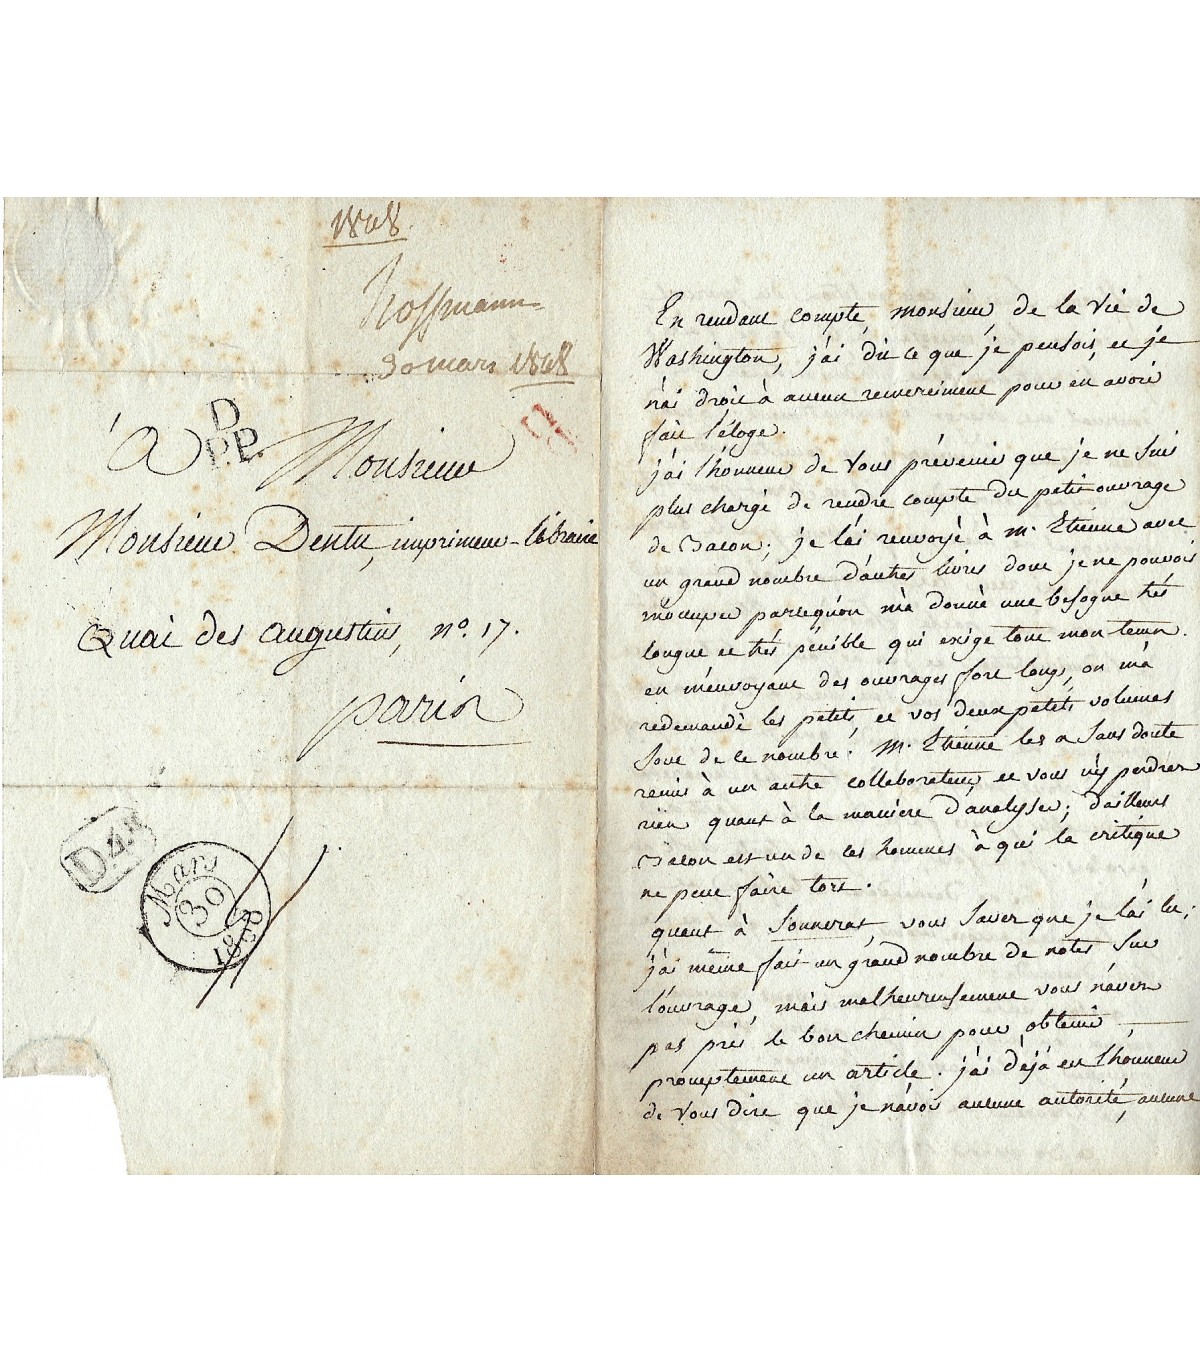 1808.
hoffmann
30 mars 1808
D
P.P.
à Monsieur
Monsieur Dentu, imprimeur-libraire
Quai des augustins, n.º 17.
paris
D.4.
Mars
30
1808
En rendant compte, monsieur, de la vie de
Washington, j'ai dit ce que je pensois, et je
n'ai droit à aucun remerciment pour en avoir
fait l'éloge.
j'ai l'honneur de vous prévenir que je ne suis
plus chargé de rendre compte du petit ouvrage
de Bacon; je l'ai renvoyé à M. Etienne avec
un grand nombre d'autres livres dont je ne pouvois
m'occuper parcequ'on m'a donné une besogne très
longue et très pénible qui exige tout mon tems.
en m'envoyant des ouvrages fort longs, on m'a
redemandé les petits, et vos deux petits volumes
sont de ce nombre. M. Etienne les a sans doute
remis à un autre collaborateur, et vous n'y perdrez
rien quant à la manière d'analyser; d'ailleurs
Bacon est un de ces hommes à qui la critique
ne peut faire tort.
quant à Sonnerat, vous savez que je l'ai lu;
j'ai même fait un grand nombre de notes sur
l'ouvrage, mais malheureusement vous n'avez
pas pris le bon chemin pour obtenir
promptement un article. j'ai déjà eu l'honneur
de vous dire que je n'avois aucune autorité, aucune